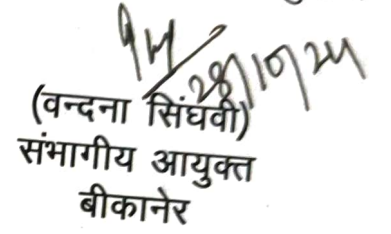 28/10/24
(वन्दना सिंघवी)
संभागीय आयुक्त
बीकानेर